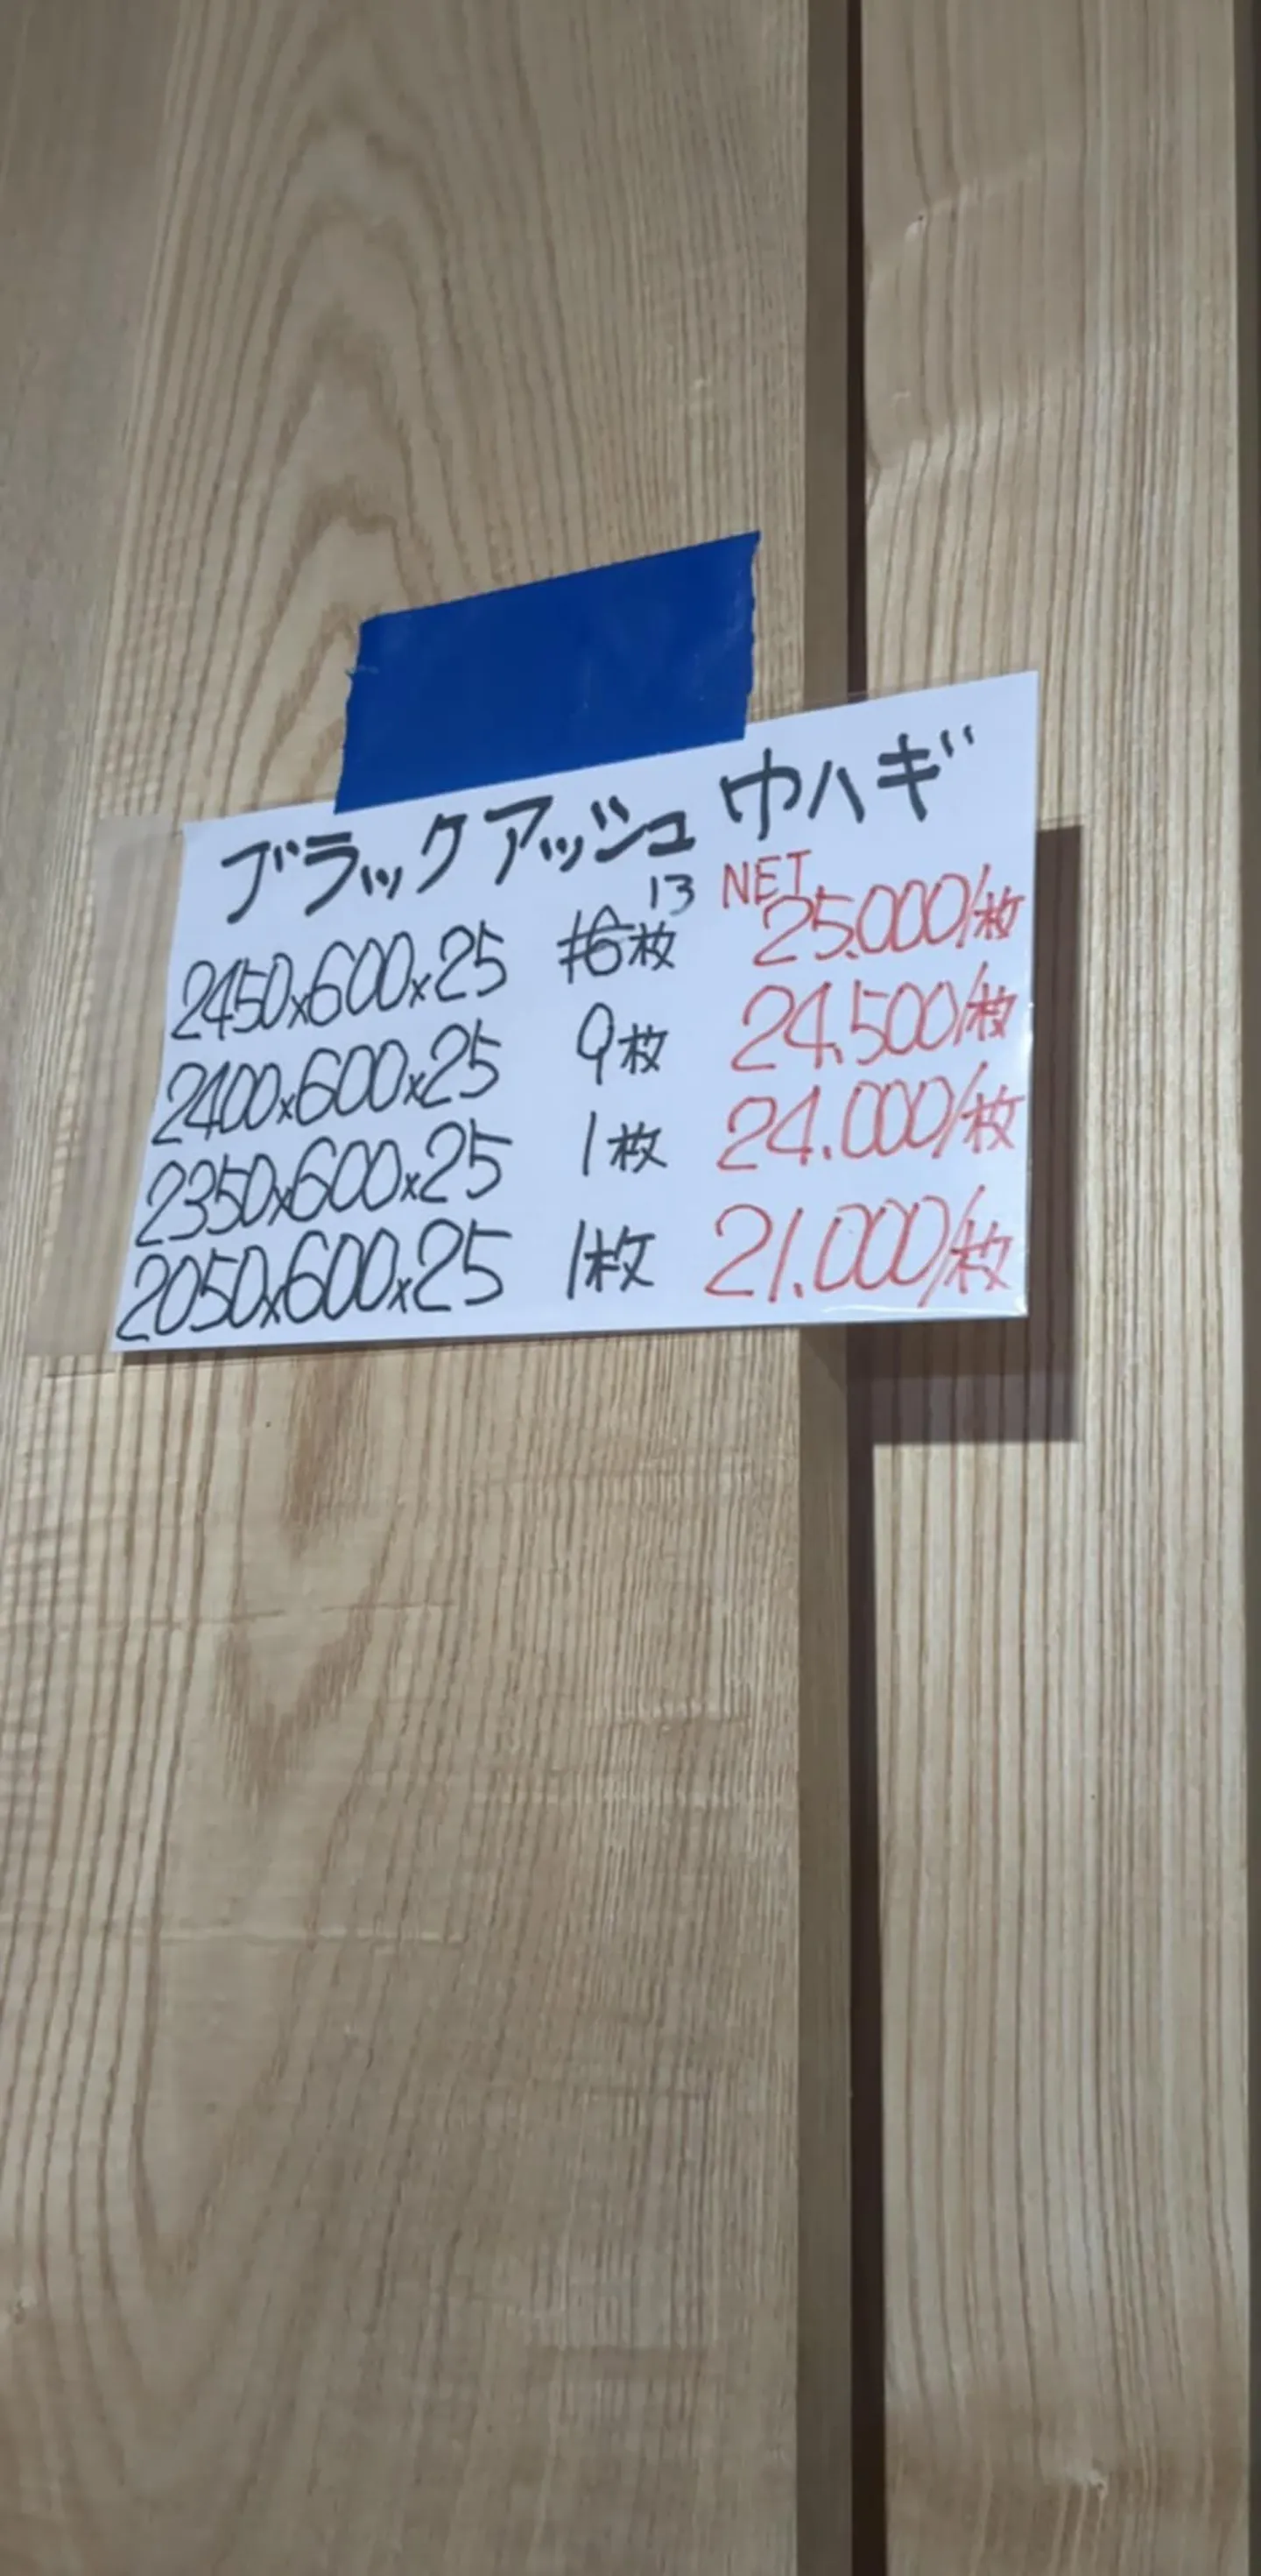 ブラックアッシュ 巾ハギ
13 NET
2450x600x25 16枚 25.000/枚
2400x600x25 9枚 24.500/枚
2350x600x25 1枚 24.000/枚
2050x600x25 1枚 21.000/枚